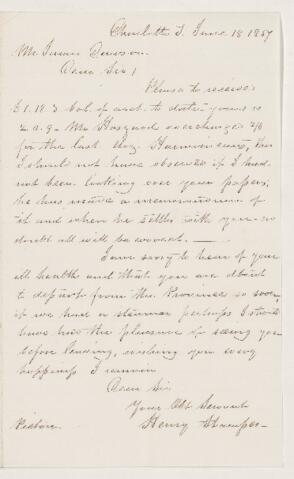 Charlotte T. June 18 1857
Mr. James Dawson.
Dear Sir /
Please to receive
£1.18.3 Bal. of acct. to date yours is
2.2.9 Mr overcharged 2/6
for the last doz. this
I should not have observed if I had
not been looking over your papers,
he has made a memorandum of
it and when he settles with you no
doubt all will be correct. —
I am sorry to hear of your
ill health and that you are about
to depart from the Province so soon
if we had a steamer perhaps I should
have had the pleasure of seeing you
before leaving, wishing you every
happiness I remain
Dear Sir
Your Obt Servant
Pictou. Henry